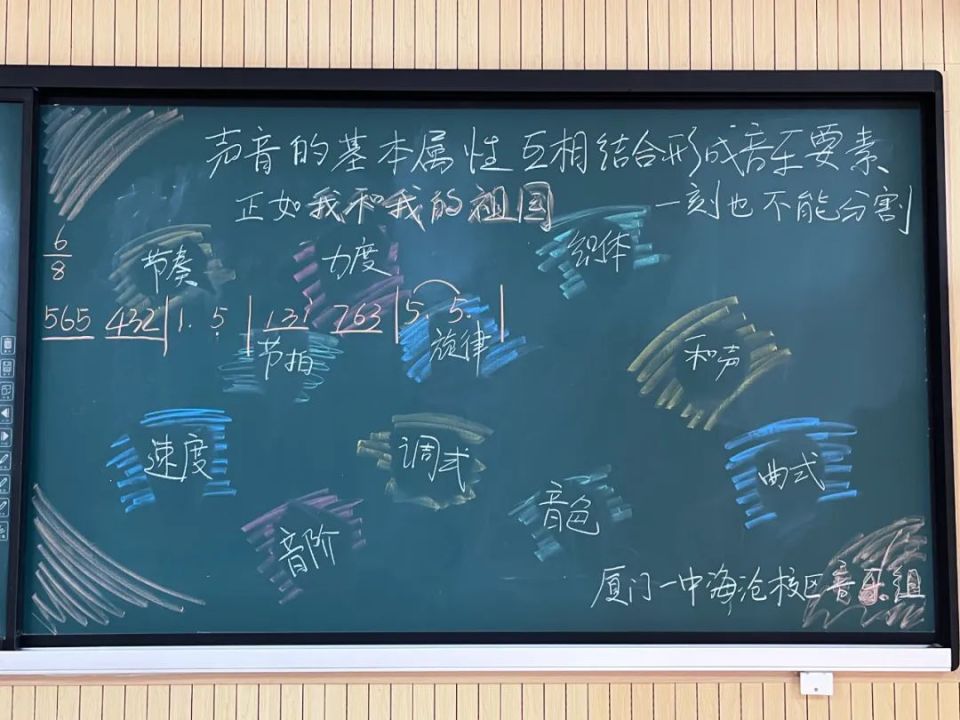 声音的基本属性互相结合形成音乐要素
正如我和我的祖国 一刻也不能分割
6
8
节奏 力度 织体
565 432 | 1. 5̣ | 131̇ 763 | 5. 5. |
节拍 旋律 和声
速度 调式 曲式
音阶 音色
厦门一中海沧校区音乐组